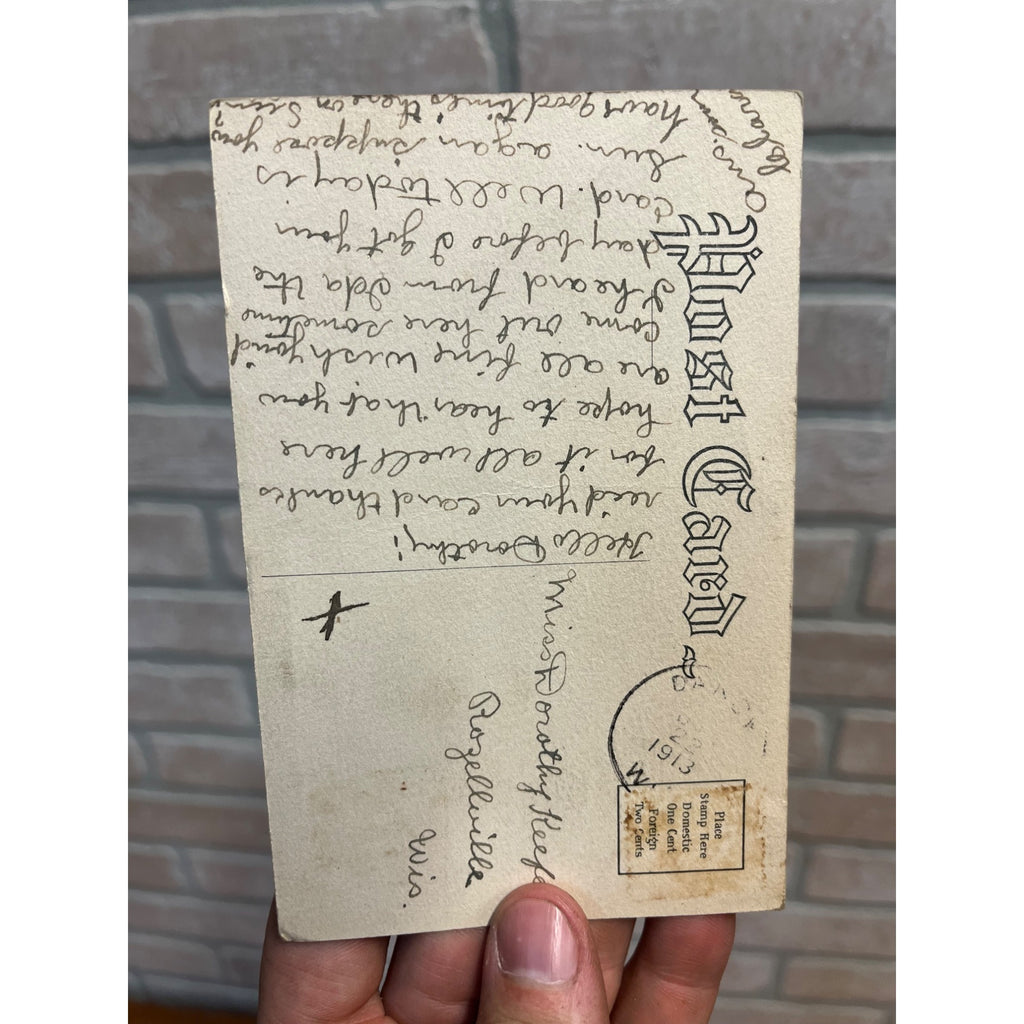 Post Card
Place
Stamp Here
Domestic
One Cent
Foreign
Two Cents
1913
Miss Dorothy Keefe
Rozellville
Wis.
Hello Dorothy!
recid your card thanks
for it all well here
hope to hear that you
are all fine wish you'd
come out here sometime
I heard from Ida the
day before I got your
card. Well today is
Sun. agan suppose you
have good times there on Sun?
Ans. soon